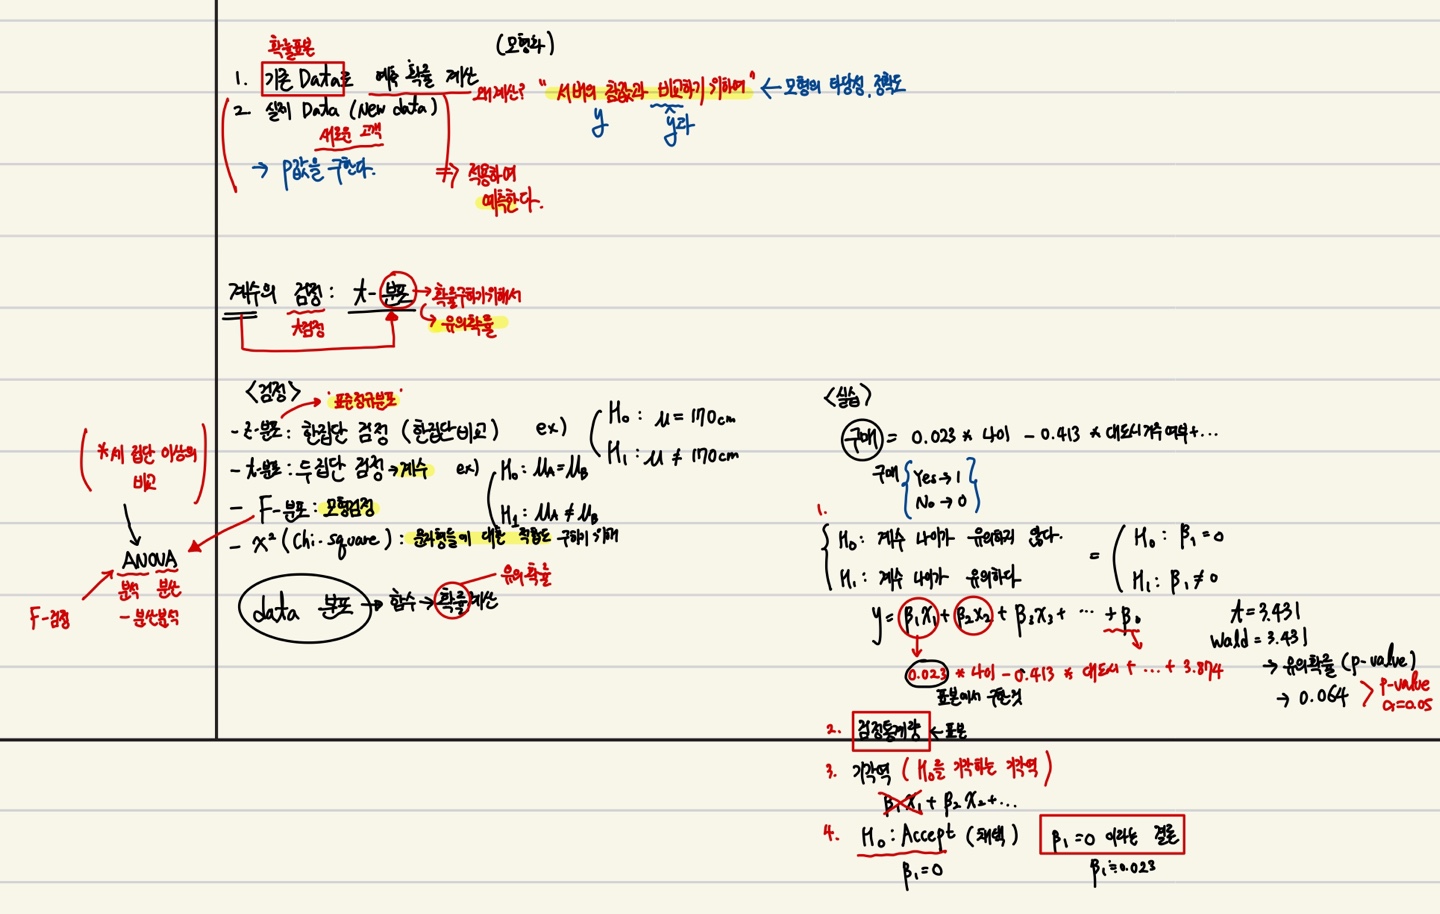 확률표본
(모형화)
1. 기존 Data로 예측 확률 계산
왜 계산? "서버의 참값과 비교하기 위하여" ← 모형의 타당성, 정확도
y ŷ과
2. 실제 Data (New data)
새로운 고객
→ p값을 구한다.
⇒ 적용하여
예측한다.
계수의 검정 : t-분포 → 확률구하기위해서
t검정
→ 유의확률
<검정>
'표준정규분포'
- z-분포 : 한집단 검정 (한집단비교) ex) H₀ : μ = 170cm
H₁ : μ ≠ 170cm
- t-분포 : 두집단 검정 → 계수 ex) H₀ : μA = μB
H₁ : μA ≠ μB
- F-분포 : 모형검정
- x² (Chi-square) : 구하기 위해
(*세 집단 이상의
비교)
ANOVA
분석 분산
- 분산분석
F-검정
data 분포 → 함수 → 확률계산
유의확률
<실습>
구매 = 0.023 * 나이 - 0.413 * 대도시거주여부 + ...
구매 { Yes → 1
No → 0 }
1.
H₀ : 계수 나이가 유의하지 않다.
H₁ : 계수 나이가 유의하다
= ( H₀ : β₁ = 0
H₁ : β₁ ≠ 0
y = β₁X₁ + β₂X₂ + β₃X₃ + ... + β₀
0.023 * 나이 - 0.413 * 대도시 + ... + 3.874
표본에서 구한것
t = 3.431
Wald = 3.431
→ 유의확률 (p-value)
→ 0.064 > p-value
α=0.05
2. 검정통계량 ← 표본
3. 기각역 (H₀을 기각하는 기각역)
β₁X₁ + β₂X₂ + ...
4. H₀ : Accept (채택)
β₁ = 0
β₁ = 0 이라는 결론
β₁ ≒ 0.023